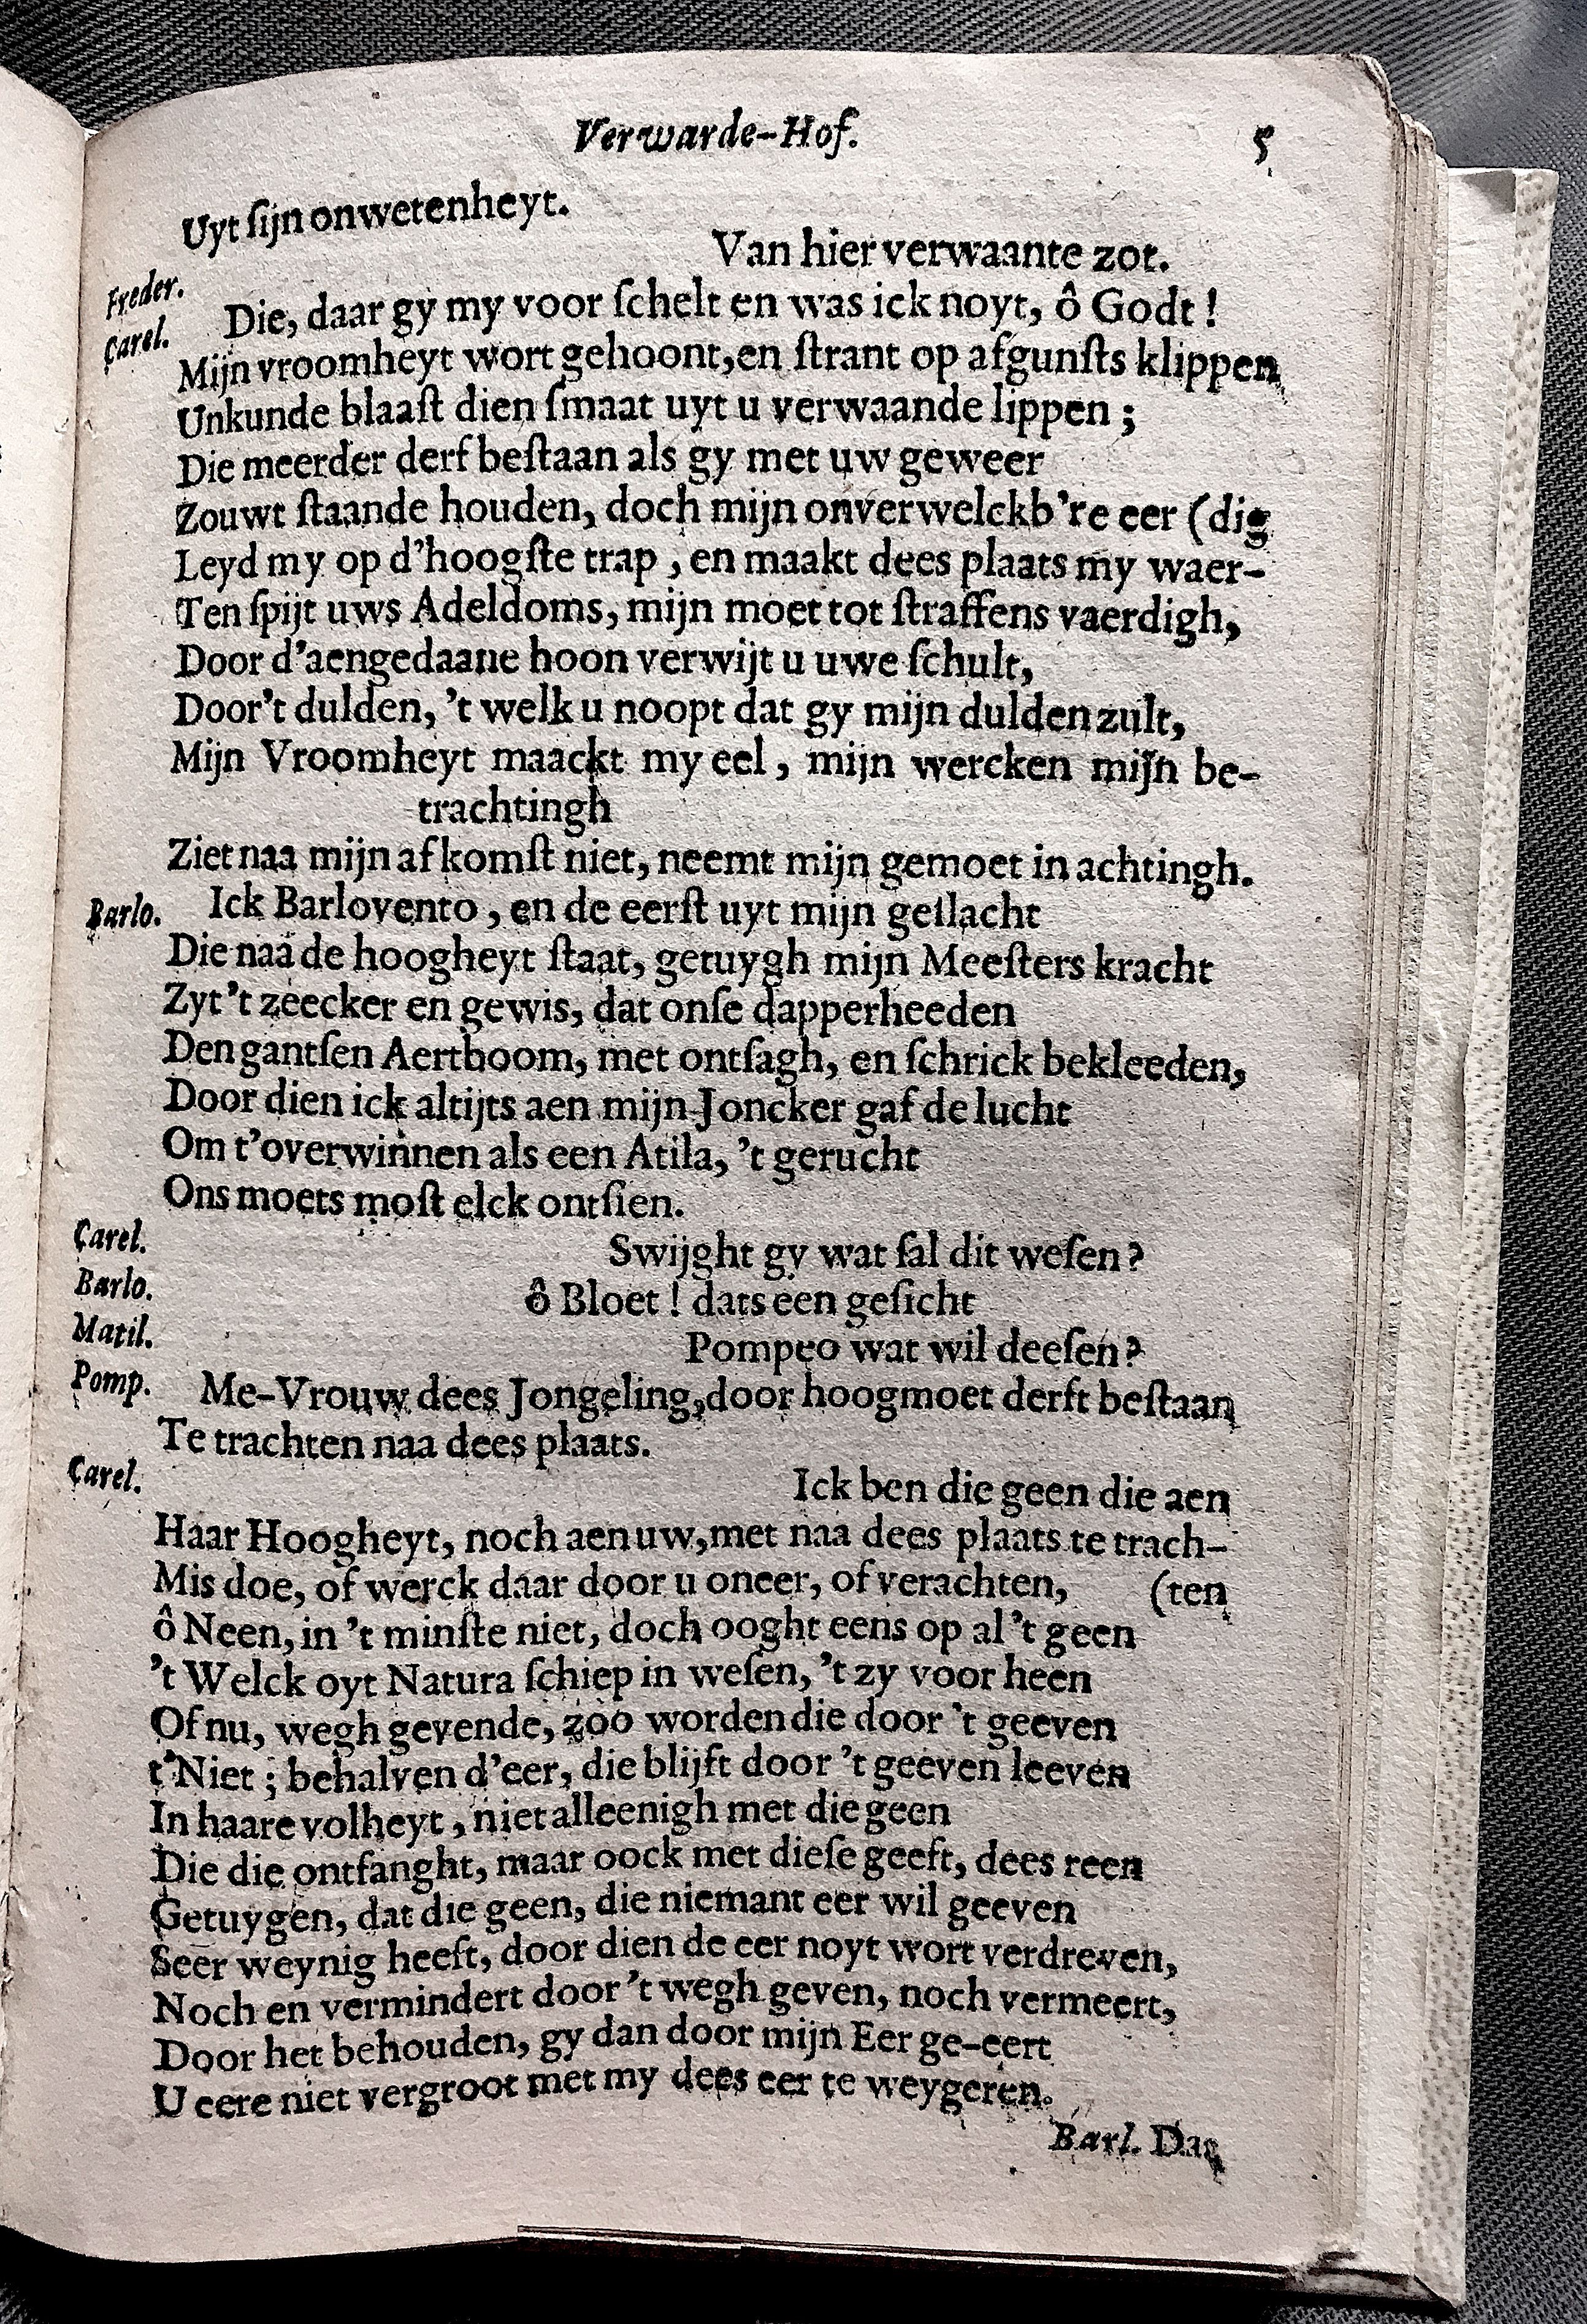 Verwarde-Hof. 5
Uyt ſijn onwetenheyt.
Freder. Van hier verwaante zot.
Carel. Die, daar gy my voor ſchelt en was ick noyt, ô Godt!
Mijn vroomheyt wort gehoont, en ſtrant op afgunſts klippen
Unkunde blaaſt dien ſmaat uyt u verwaande lippen;
Die meerder derf beſtaan als gy met uw geweer
Zouwt ſtaande houden, doch mijn onverwelckb're eer (dig
Leyd my op d'hoogſte trap, en maakt dees plaats my waer-
Ten ſpijt uws Adeldoms, mijn moet tot ſtraffens vaerdigh,
Door d'aengedaane hoon verwijt u uwe ſchult,
Door't dulden, 't welk u noopt dat gy mijn dulden zult,
Mijn Vroomheyt maackt my eel, mijn wercken mijn be-
trachtingh
Ziet naa mijn afkomſt niet, neemt mijn gemoet in achtingh.
Barlo. Ick Barlovento, en de eerſt uyt mijn geſlacht
Die naa de hoogheyt ſtaat, getuygh mijn Meeſters kracht
Zyt't zeecker en gewis, dat onſe dapperheeden
Den gantſen Aertboom, met ontſagh, en ſchrick bekleeden,
Door dien ick altijts aen mijn Joncker gaf de lucht
Om t'overwinnen als een Atila, 't gerucht
Ons moets moſt elck ontſien.
Carel. Swijght gy wat ſal dit weſen?
Barlo. ô Bloet! dats een geſicht
Matil. Pompeo wat wil deeſen?
Pomp. Me-Vrouw dees Jongeling, door hoogmoet derft beſtaan
Te trachten naa dees plaats.
Carel. Ick ben die geen die aen
Haar Hoogheyt, noch aen uw, met naa dees plaats te trach-
Mis doe, of werck daar door u oneer, of verachten, (ten
ô Neen, in 't minſte niet, doch ooght eens op al 't geen
't Welck oyt Natura ſchiep in weſen, 't zy voor heen
Of nu, wegh gevende, zoo worden die door 't geeven
t'Niet; behalven d'eer, die blijft door 't geeven leeven
In haare volheyt, niet alleenigh met die geen
Die die ontfanght, maar oock met dieſe geeft, dees reen
Getuygen, dat die geen, die niemant eer wil geeven
Seer weynig heeft, door dien de eer noyt wort verdreven,
Noch en vermindert door 't wegh geven, noch vermeert,
Door het behouden, gy dan door mijn Eer ge-eert
U eere niet vergroot met my dees eer te weygeren.
Barl. Dat